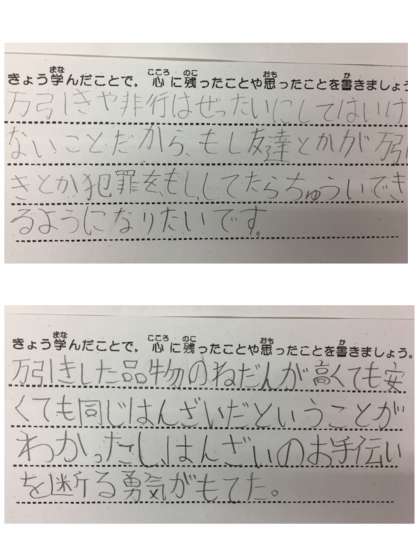 きょう学んだことで，心に残ったことや思ったことを書きましょう
万引きや非行はぜったいにしてはいけ
ないことだから、もし友達とかが万引
きとか犯罪を、もし、してたらちゅういでき
るようになりたいです。
きょう学んだことで，心に残ったことや思ったことを書きましょう。
万引きした品物のねだんが高くても安
くても同じはんざいだということが
わかったし、はんざいのお手伝い
を断る勇気がもてた。